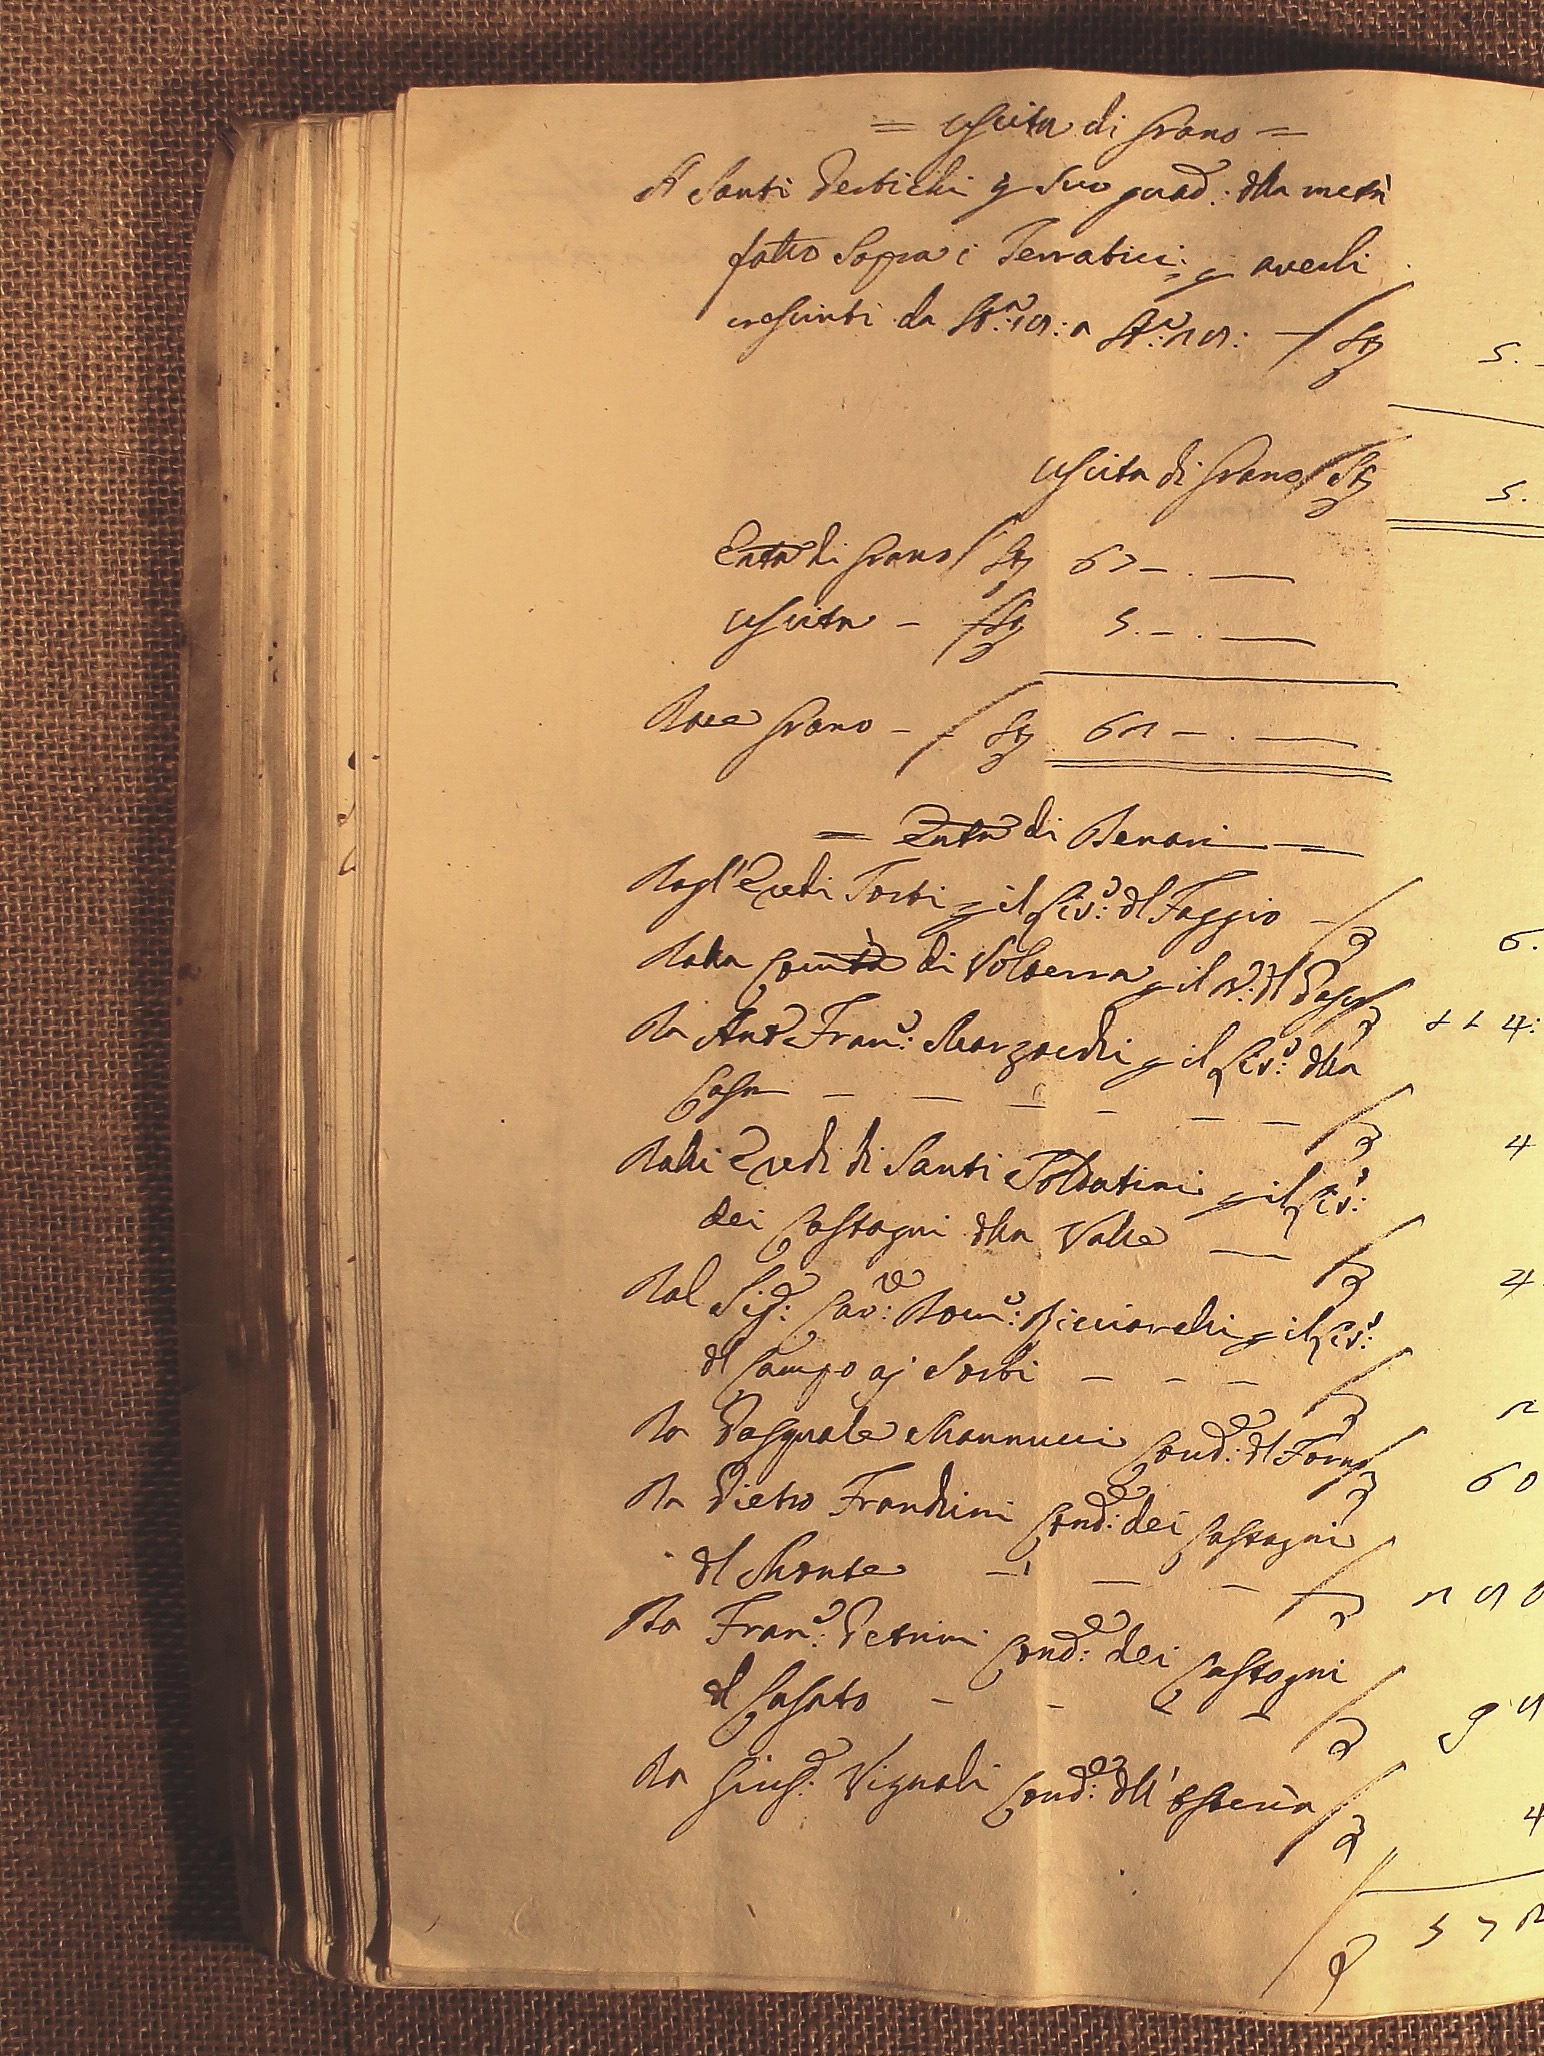 = uscita di Grano =
A Santi Bertichi p Suo guad: dlla metà
fatto Sopra i Terratici: p averli
cresciuti da St: 10: a St: 20: — St 5. –
uscita di Grano St 5.
Entta di Grano St 67 – . —
uscita – St 5. – . —
Dare Grano – St 62 – . —
= Entta di Denari =
Dagl'Eredi Torti p il Livo: dl Faggio – 6.
Dalla Comtà di Volterra p il dl 114:
Da Anto Franco: Marzocchi p il Livo: dlla
Casa — — — — — 4
Dalli Eredi di Santi Soldatini p il Livo:
dei Castagni dlla Valle — 4
Dal Sigr: Cavre: Domco: Ricciarelli p il Livo:
dl Campo a Sorbi – – – 2
Da Pasquale Mannucci Conde: dl Forno 60
Da Pietro Franchini Conde: dei Castagni
dl Monte – – – 290
Da Franco: Petrini Conde: dei Castagni
dl Casato – – 9
Da Giuse: Vignali Conde: dll'osteria 4
572